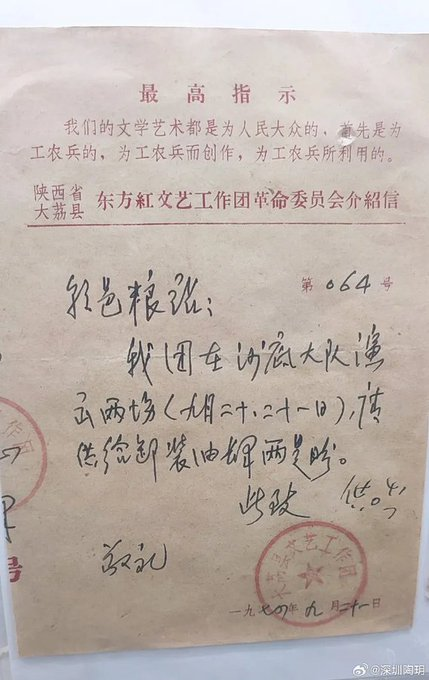 最高指示
我们的文学艺术都是为人民大众的，首先是为
工农兵的，为工农兵而创作，为工农兵所利用的。
陕西省
大荔县 东方紅文艺工作团革命委员会介紹信
第 064 号
朝邑粮站：
我团在沙底大队演
出两场（九月二十、二十一日），请
供给卸装油肆两是盼。
此致
敬礼
大荔县文艺工作团
一九七〇年九月二十一日
号
@深圳陶玥